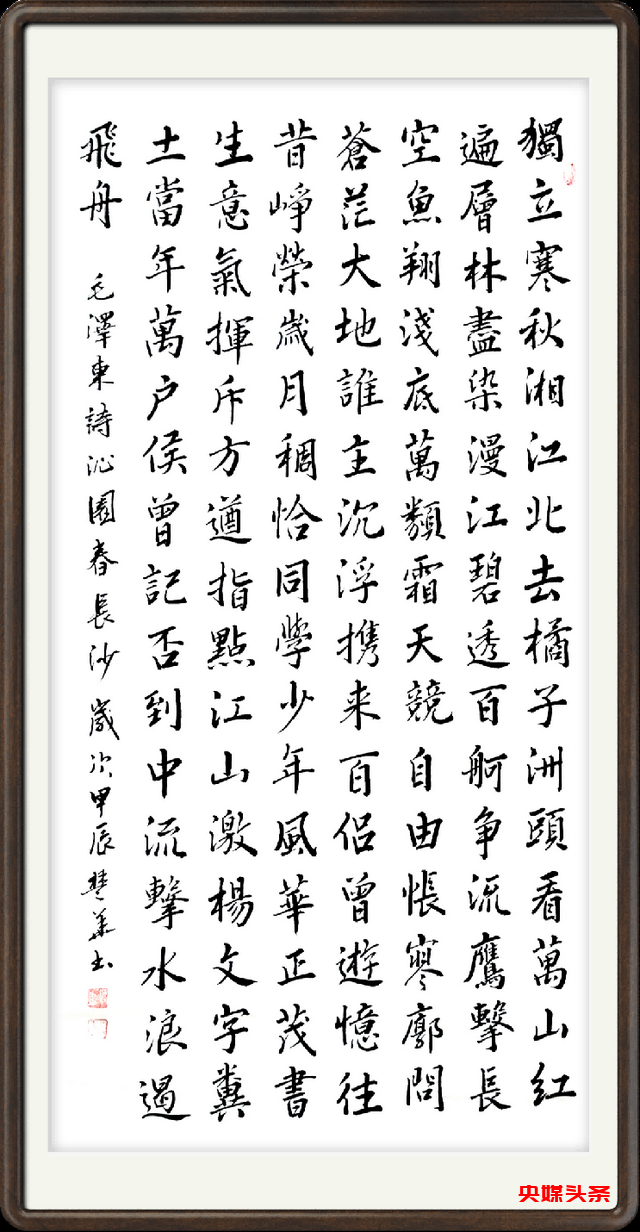 獨立寒秋湘江北去橘子洲頭看萬山紅
遍層林盡染漫江碧透百舸争流鷹擊長
空魚翔淺底萬類霜天競自由悵寥廓問
蒼茫大地誰主沉浮携来百侣曾遊憶往
昔崢榮歲月稠恰同學少年風華正茂書
生意氣揮斥方遒指點江山激楊文字糞
土當年萬户侯曾記否到中流擊水浪遏
飛舟 毛澤東詩沁園春長沙 歲次甲辰楚華书
央媒头条